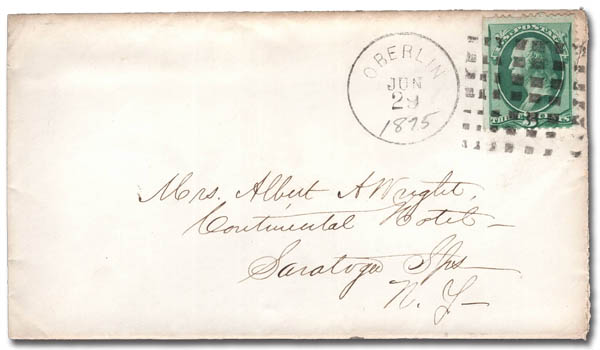 OBERLIN
JUN
29
1875
U.S. POSTAGE
THREE CENTS
3
Mrs. Albert A Wright,
Continental Hotel —
Saratoga Sps
N. Y —